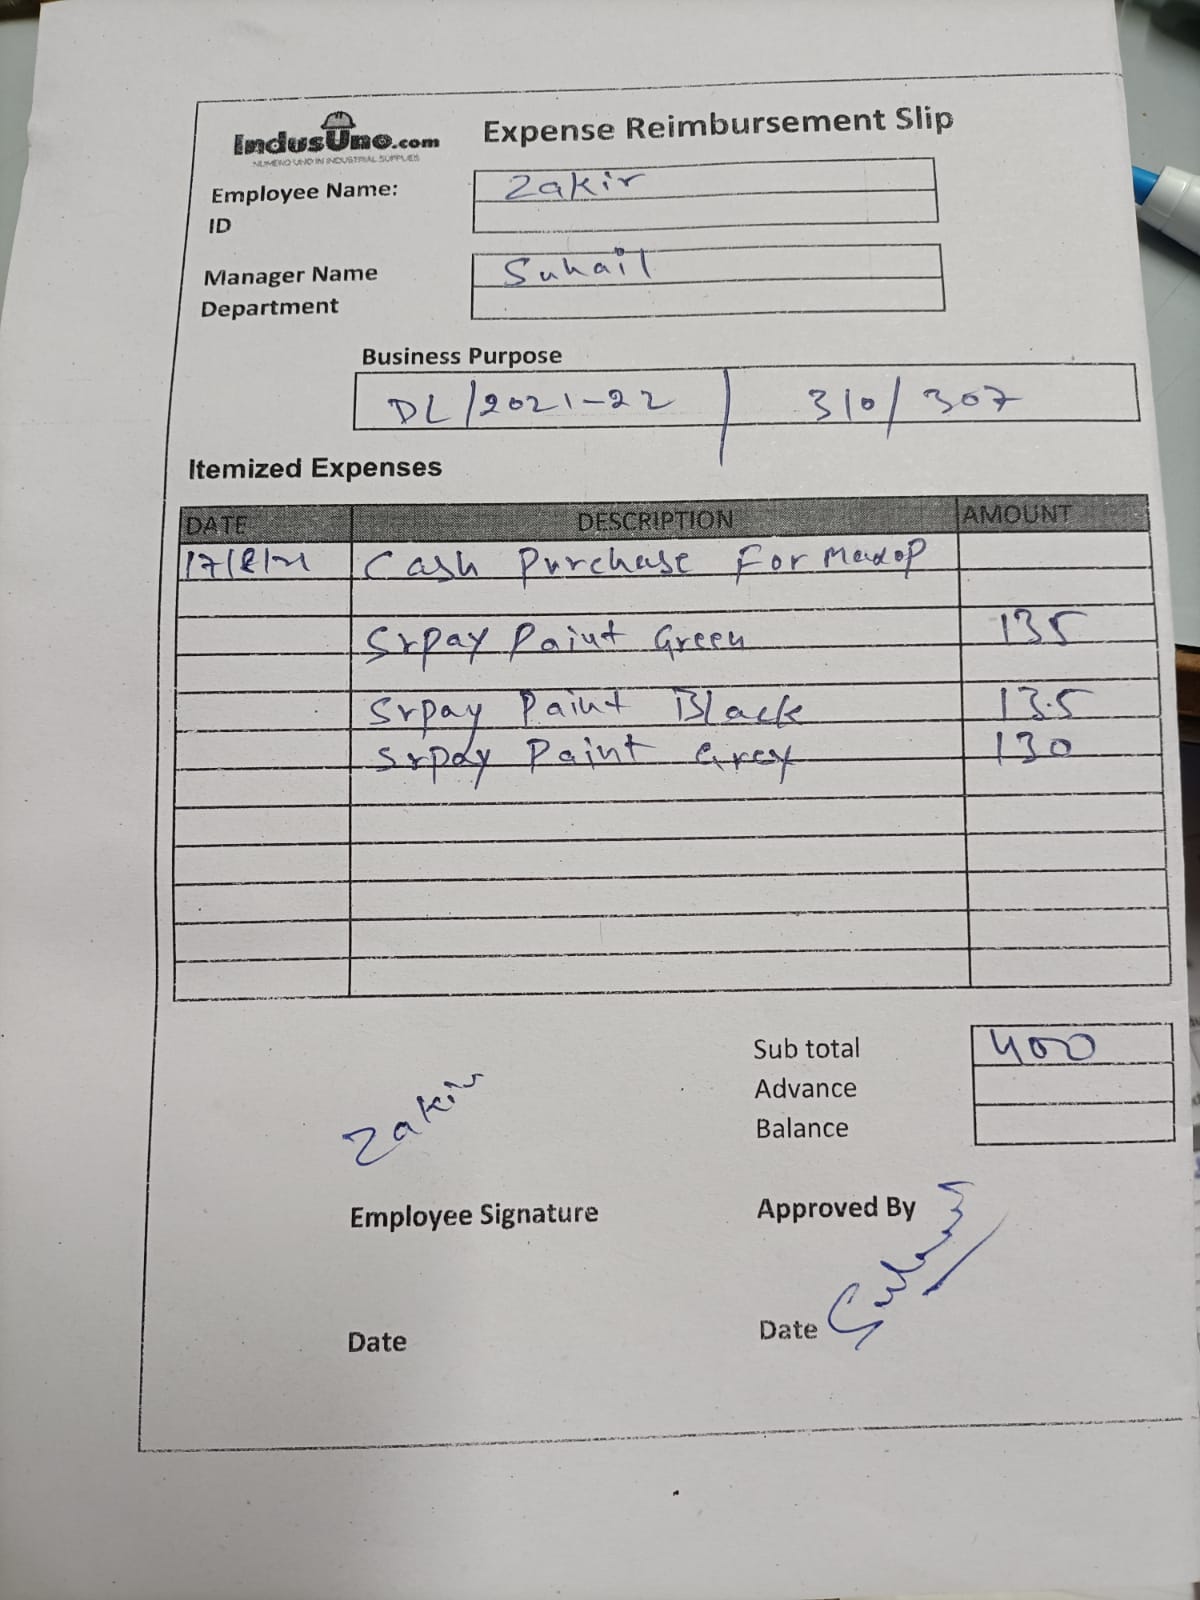 IndusUno.com
NUMERO UNO IN INDUSTRIAL SUPPLIES
Expense Reimbursement Slip
Employee Name: Zakir
ID
Manager Name Suhail
Department
Business Purpose
DL/2021-22 | 310/307
Itemized Expenses
DATE DESCRIPTION AMOUNT
17/8/21 Cash Purchase For
Srpay Paint Green 135
Srpay Paint Black 135
Srpay Paint Grey 130
Sub total 400
Advance
Balance
Zakir
Employee Signature Approved By
Date Date